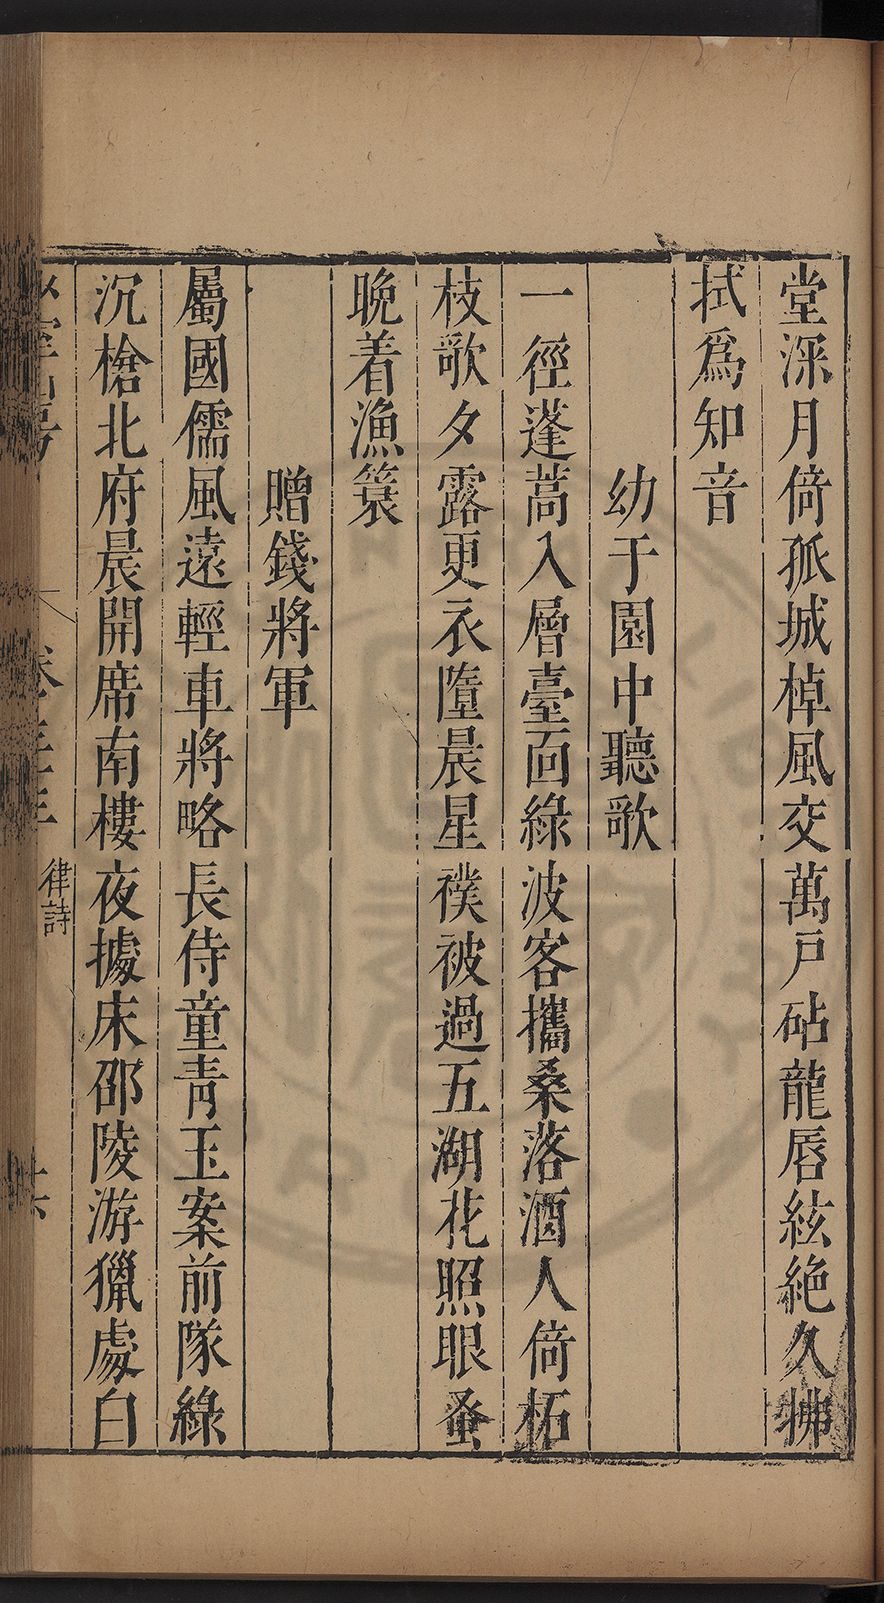 堂深月倚孤城棹風交萬戸砧龍唇絃絶久拂
拭爲知音
幼于園中聽歌
一徑蓬蒿入層臺面綠波客攜桑落酒人倚柘
枝歌夕露更衣墮晨星襆被過五湖花照眼蚤
晚着漁簑
贈錢將軍
屬國儒風遠輕車將略長侍童青玉案前隊綠
沉槍北府晨開席南樓夜據床邵陵游獵處白
律詩